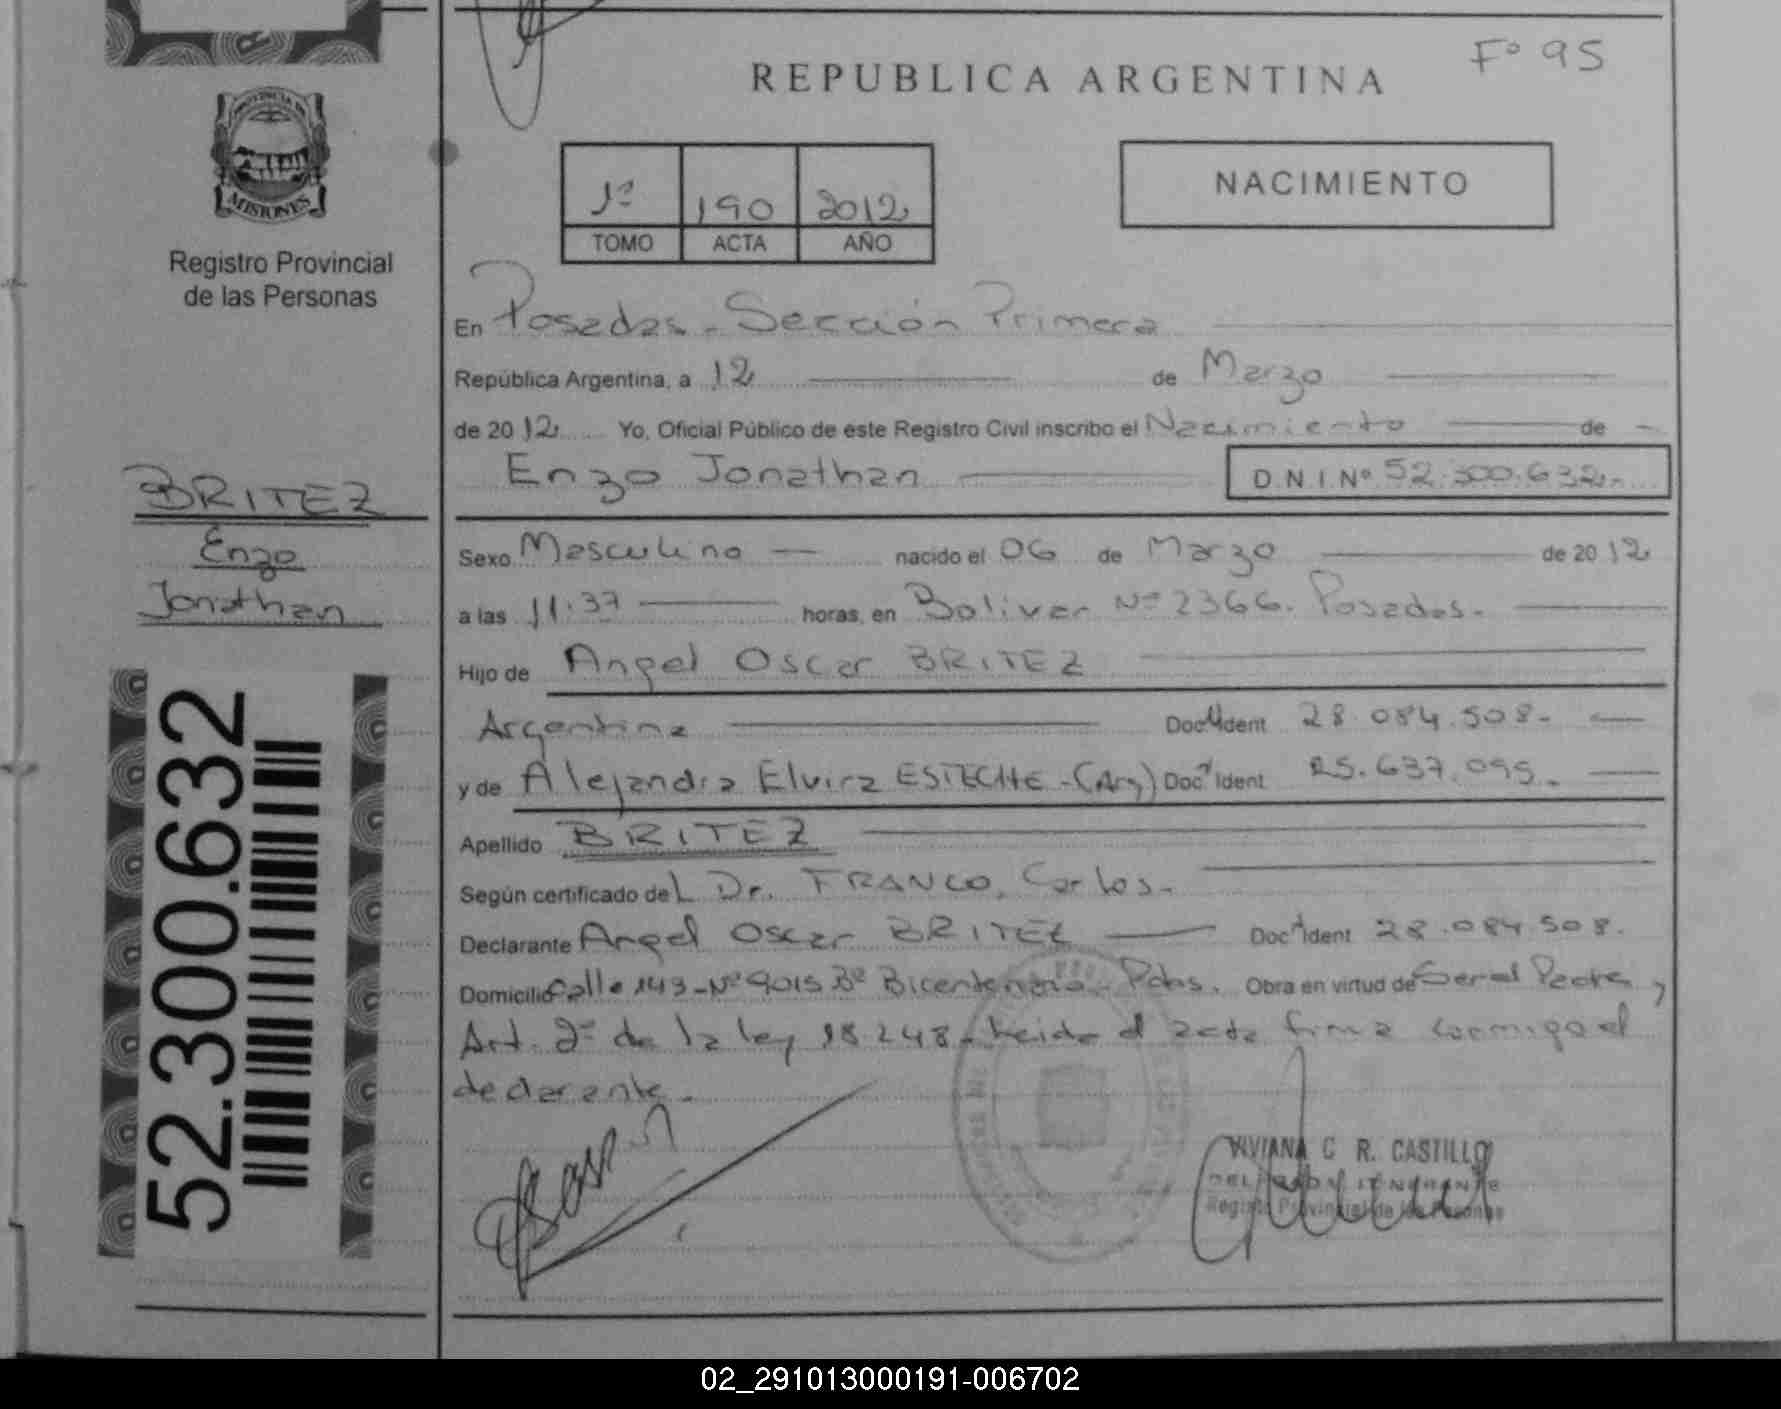 REPUBLICA ARGENTINA
Fº 95
PROVINCIA DE
MISIONES
Registro Provincial
de las Personas
1º 190 2012
TOMO ACTA AÑO
NACIMIENTO
En Posadas - Sección Primera
República Argentina, a 12 de Marzo
de 2012 Yo, Oficial Público de este Registro Civil inscribo el Nacimiento de
Enzo Jonathan D.N.I.Nº 52.300.632.-
BRITEZ
Enzo
Jonathan
52.300.632
Sexo Masculino nacido el 06 de Marzo de 2012
a las 11:37 horas, en Bolivar Nº 2366. Posadas.
Hijo de Angel Oscar BRITEZ
Argentina Doc. Ident 28.084.508-
y de Alejandra Elvira ESTECHE - (Arg) Doc. Ident 25.637.095.
Apellido BRITEZ
Según certificado del Dr. FRANCO, Carlos.
Declarante Angel Oscar BRITEZ Doc. Ident 28.084.508.
Domicilio Calle 143 - Nº 9015 Bº Bicentenario - Pdas. Obra en virtud de Ser el Padre y
Art. 2º de la ley 18.248. Leida el acta firma conmigo el
declarante.
VIVIANA C R. CASTILLO
Registro Provincial de las Personas
02_291013000191-006702